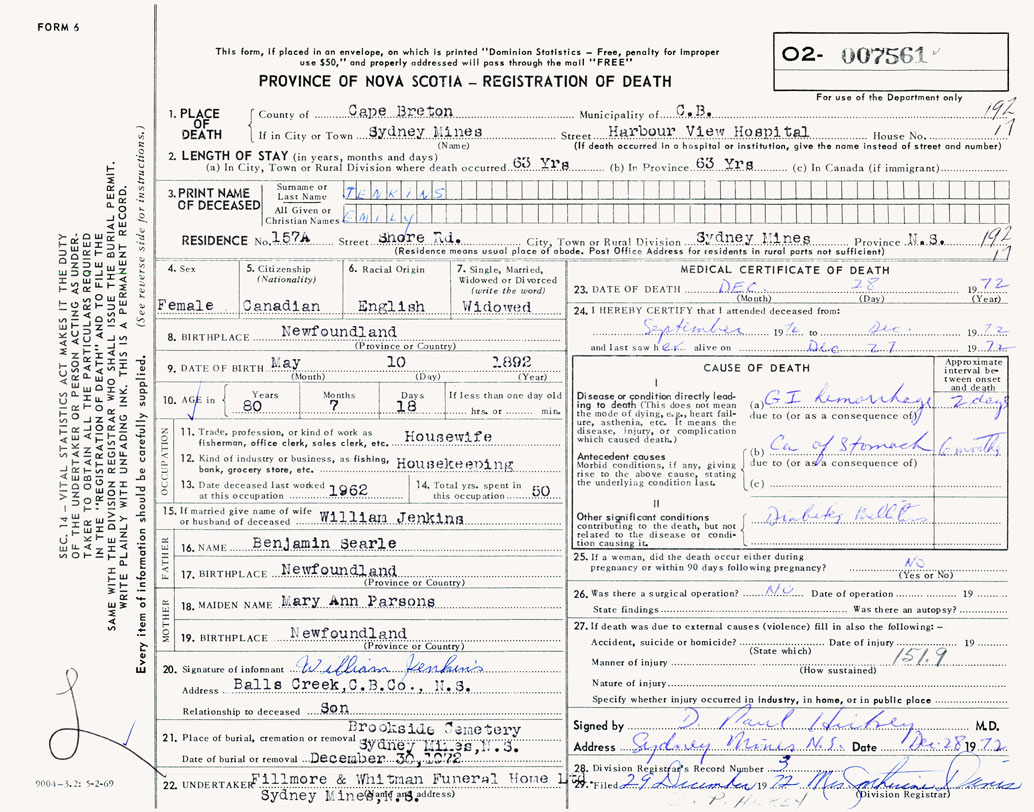 FORM 6
This form, if placed in an envelope, on which is printed "Dominion Statistics – Free, penalty for improper
use $50," and properly addressed will pass through the mail "FREE"
PROVINCE OF NOVA SCOTIA – REGISTRATION OF DEATH
O2- 007561
For use of the Department only
1. PLACE OF DEATH County of Cape Breton Municipality of C.B. 192
If in City or Town Sydney Mines Street Harbour View Hospital House No. 17
(Name) (If death occurred in a hospital or institution, give the name instead of street and number)
2. LENGTH OF STAY (in years, months and days)
(a) In City, Town or Rural Division where death occurred 63 Yrs (b) In Province 63 Yrs (c) In Canada (if immigrant)
3. PRINT NAME OF DECEASED Surname or Last Name JENKINS
All Given or Christian Names EMILY
RESIDENCE No. 157A Street Shore Rd. City, Town or Rural Division Sydney Mines Province N.S. 192
(Residence means usual place of abode. Post Office Address for residents in rural parts not sufficient) 17
4. Sex
Female
5. Citizenship
(Nationality)
Canadian
6. Racial Origin
English
7. Single, Married,
Widowed or Divorced
(write the word)
Widowed
8. BIRTHPLACE Newfoundland
(Province or Country)
9. DATE OF BIRTH May 10 1892
(Month) (Day) (Year)
10. AGE in Years Months Days If less than one day old
80 7 18 hrs. or min.
OCCUPATION
11. Trade, profession, or kind of work as
fisherman, office clerk, sales clerk, etc. Housewife
12. Kind of industry or business, as fishing,
bank, grocery store, etc. Housekeeping
13. Date deceased last worked
at this occupation 1962
14. Total yrs. spent in
this occupation 50
15. If married give name of wife
or husband of deceased William Jenkins
FATHER
16. NAME Benjamin Searle
17. BIRTHPLACE Newfoundland
(Province or Country)
MOTHER
18. MAIDEN NAME Mary Ann Parsons
19. BIRTHPLACE Newfoundland
(Province or Country)
20. Signature of informant William Jenkins
Address Balls Creek, C.B.Co., N.S.
Relationship to deceased Son
21. Place of burial, cremation or removal Brookside Cemetery
Sydney Mines, N.S.
Date of burial or removal December 30, 1972
22. UNDERTAKER Fillmore & Whitman Funeral Home Ltd.
Sydney Mines, N.S.
(Name and address)
MEDICAL CERTIFICATE OF DEATH
23. DATE OF DEATH DEC. 28 1972
(Month) (Day) (Year)
24. I HEREBY CERTIFY that I attended deceased from:
September 1972 to Dec. 1972
and last saw her alive on Dec 27 1972
CAUSE OF DEATH
Approximate
interval be-
tween onset
and death
I
Disease or condition directly lead-
ing to death (This does not mean
the mode of dying, e.g., heart fail-
ure, asthenia, etc. It means the
disease, injury, or complication
which caused death.)
(a) GI hemorrhage 2 days
due to (or as a consequence of)
Antecedent causes
Morbid conditions, if any, giving
rise to the above cause, stating
the underlying condition last.
(b) Ca of Stomach 6 months
due to (or as a consequence of)
(c)
II
Other significant conditions
contributing to the death, but not
related to the disease or condi-
tion causing it.
Diabetes Mellitus
25. If a woman, did the death occur either during
pregnancy or within 90 days following pregnancy? NO
(Yes or No)
26. Was there a surgical operation? NO Date of operation 19
State findings Was there an autopsy?
27. If death was due to external causes (violence) fill in also the following: –
Accident, suicide or homicide? Date of injury 19
(State which)
Manner of injury 151.9
(How sustained)
Nature of injury
Specify whether injury occurred in Industry, in home, or in public place
Signed by D. Paul Hickey M.D.
Address Sydney Mines N.S. Date Dec 28 1972
28. Division Registrar's Record Number 3
29. Filed 29 December 1972 Mrs Catherine Davis
(Division Registrar)
D. P. HICKEY
SEC. 14 – VITAL STATISTICS ACT MAKES IT THE DUTY
OF THE UNDERTAKER OR PERSON ACTING AS UNDER-
TAKER TO OBTAIN ALL THE PARTICULARS REQUIRED
IN THE "REGISTRATION OF DEATH" AND TO FILE THE
SAME WITH THE DIVISION REGISTRAR WHO SHALL ISSUE THE BURIAL PERMIT.
WRITE PLAINLY WITH UNFADING INK. THIS IS A PERMANENT RECORD.
Every item of information should be carefully supplied. (See reverse side for instructions.)
9004-3.2: 5-2-69